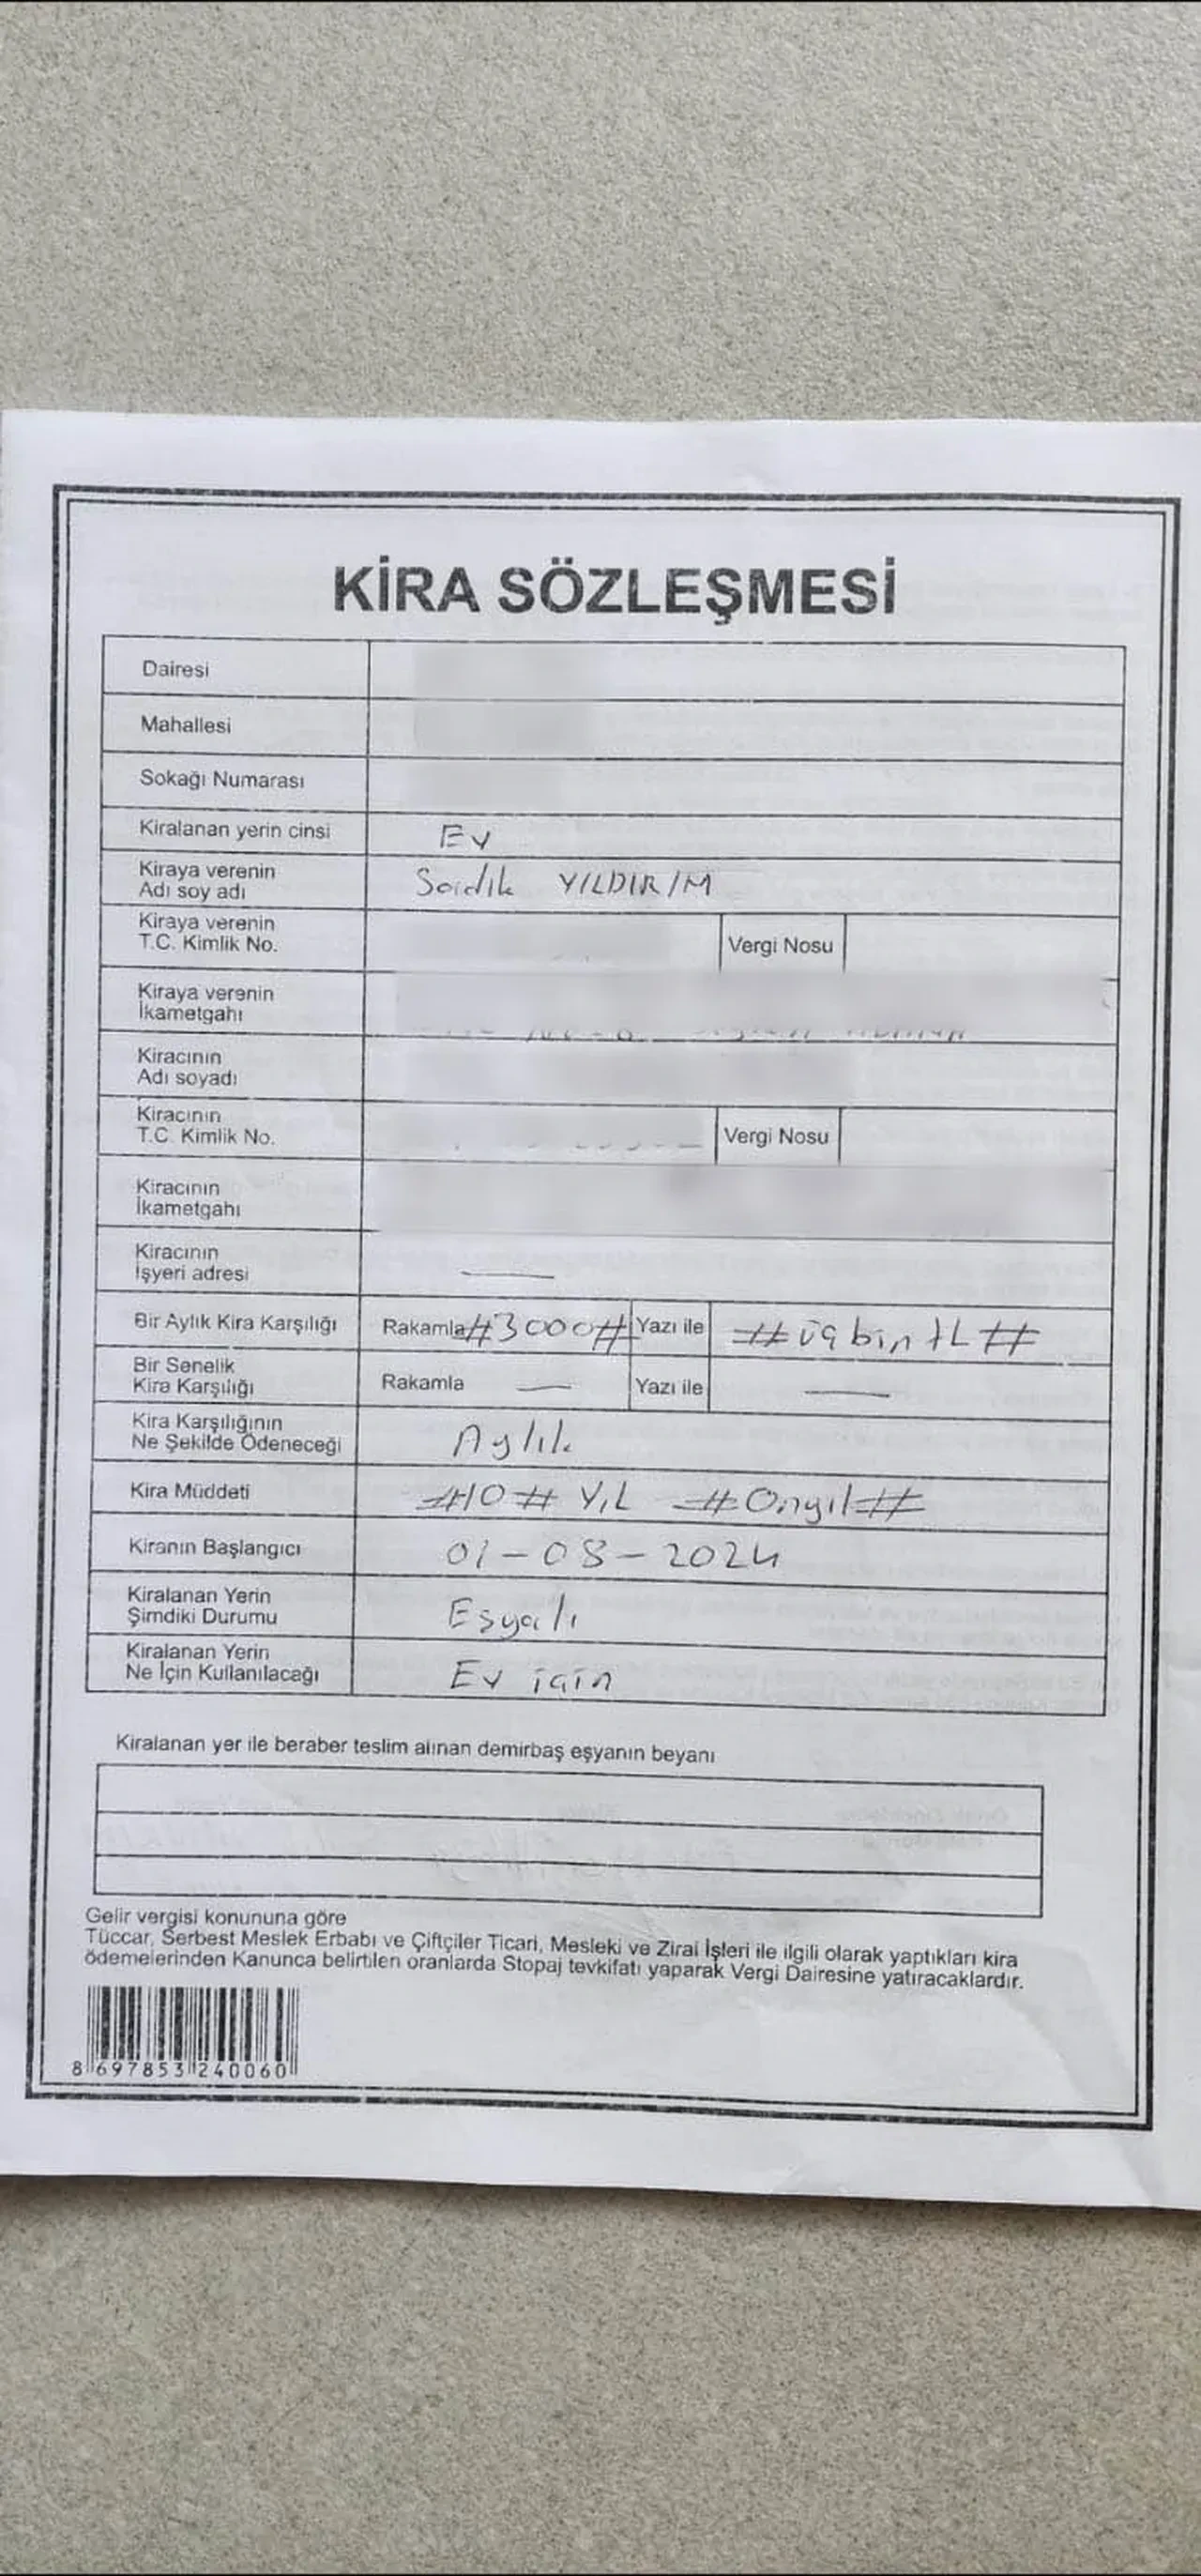 KİRA SÖZLEŞMESİ
Dairesi
Mahallesi
Sokağı Numarası
Kiralanan yerin cinsi Ev
Kiraya verenin
Adı soy adı
Sadık YILDIRIM
Kiraya verenin
T.C. Kimlik No.
Vergi Nosu
Kiraya verenin
İkametgahı
Kiracının
Adı soyadı
Kiracının
T.C. Kimlik No.
Vergi Nosu
Kiracının
İkametgahı
Kiracının
İşyeri adresi
—
Bir Aylık Kira Karşılığı Rakamla #3000# Yazı ile ##üçbin tL##
Bir Senelik
Kira Karşılığı
Rakamla — Yazı ile —
Kira Karşılığının
Ne Şekilde Ödeneceği
Aylık
Kira Müddeti #10# YıL #Onyıl##
Kiranın Başlangıcı 01-08-2024
Kiralanan Yerin
Şimdiki Durumu
Eşyalı
Kiralanan Yerin
Ne İçin Kullanılacağı
Ev için
Kiralanan yer ile beraber teslim alınan demirbaş eşyanın beyanı
Gelir vergisi konununa göre
Tüccar, Serbest Meslek Erbabı ve Çiftçiler Ticari, Mesleki ve Zirai İşleri ile ilgili olarak yaptıkları kira
ödemelerinden Kanunca belirtilen oranlarda Stopaj tevkifatı yaparak Vergi Dairesine yatıracaklardır.
8 697853 240060